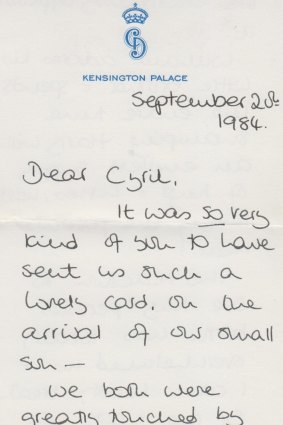 KENSINGTON PALACE
September 20th
1984.
Dear Cyril,
It was so very
kind of you to have
sent us such a
lovely card, on the
arrival of our small
son —
we both were
greatly touched by